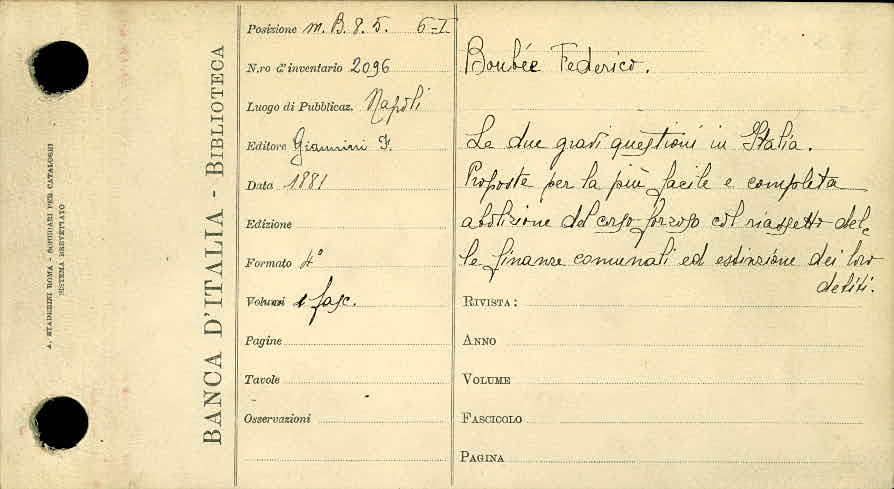 A. STADERINI ROMA - SCHEDARI PER CATALOGHI
SISTEMA BREVETTATO
BANCA D'ITALIA - BIBLIOTECA
Posizione m. B. 8. 5. 6-I
N.ro d'inventario 2096
Luogo di Pubblicaz. Napoli
Editore Giannini F.
Data 1881
Edizione
Formato 4°
Volumi 1 fasc.
Pagine
Tavole
Osservazioni
Boubée Federico.
Le due gravi questioni in Italia.
Proposte per la più facile e completa
abolizione del corso forzoso col riassetto del-
le finanze comunali ed estinzione dei loro
debiti.
RIVISTA:
ANNO
VOLUME
FASCICOLO
PAGINA